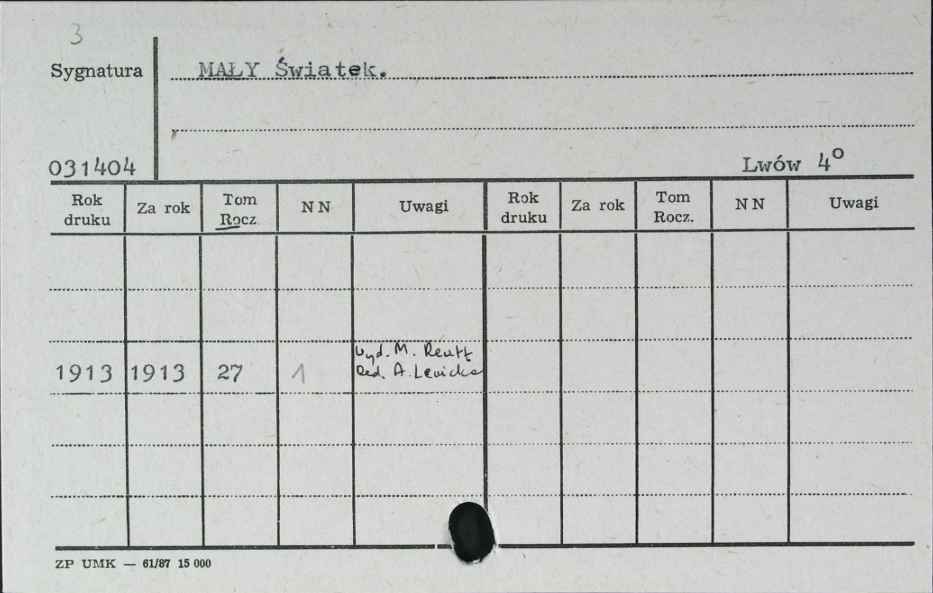 3
Sygnatura
MAŁY Światek.
031404
Lwów 4°
Rok druku Za rok Tom Rocz. NN Uwagi Rok druku Za rok Tom Rocz. NN Uwagi
wyd. M. Reutt
1913 1913 27 1 Red. A. Lewicka
ZP UMK — 61/87 15 000